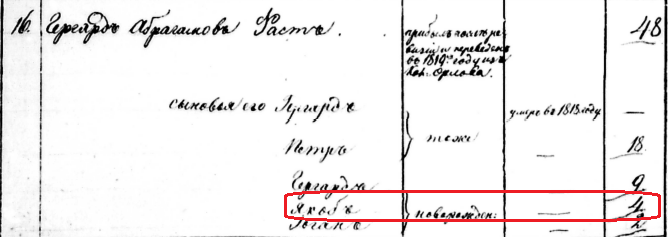 16. Гергардъ Абрагамовъ Фастъ. 48
прибылъ послѣ ре
визіи и переведенъ
въ 1819. году изъ
Кол. Орлова.
сыновья его Гергардъ умеръ въ 1813 году —
Петръ } тоже — 18
Гергардъ 9
Якобъ } новорожден: — 4
Іоганъ 2